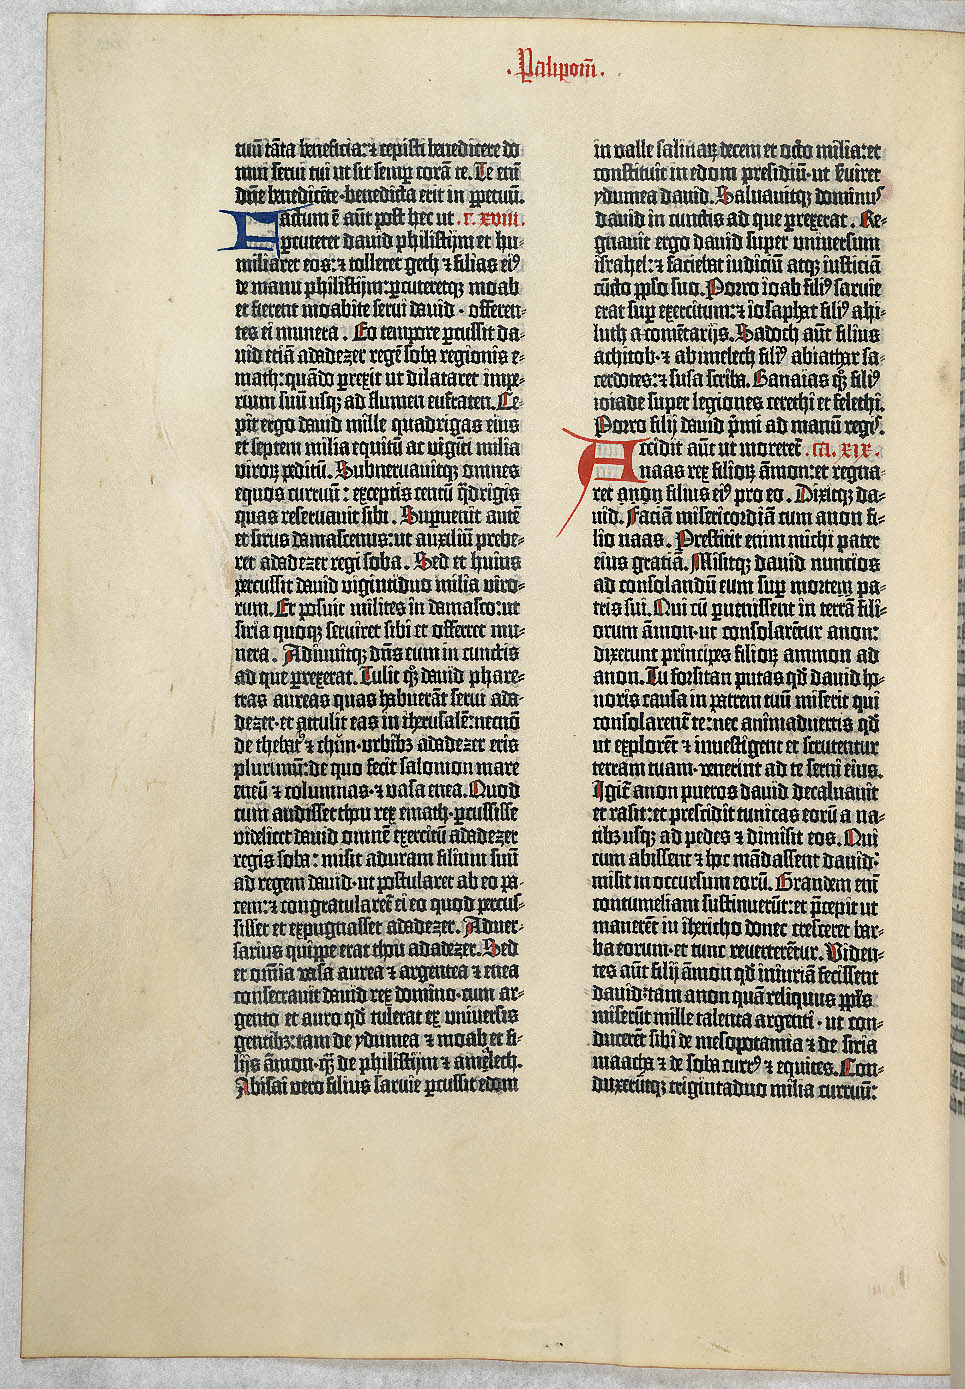 .Palipom̄.
tuū tāta beneficia: ⁊ cepisti benedicere do
mui serui tui ut sit semꝑ corā te. Te em̄
dn̄e benedicēte · benedicta erit in ꝑpetuū.
Factum ē aūt post hec ut .c. xviii.
ꝑcuteret dauid philistijm et hu-
miliaret eos: ⁊ tolleret geth ⁊ filias eiꝰ
de manu philistijm: ꝑcuteretqꝫ moab
et fierent moabite serui dauid · offeren-
tes ei munera . Eo tempore ꝑcussit da-
uid etiā adadezer regē soba regionis e-
math: quādo ꝑrexit ut dilataret impe-
rium suū usqꝫ ad flumen eufraten. Ce-
pit ergo dauid mille quadrigas eius
et septem milia equitū ac viginti milia
viroꝝ peditū. Subneruauitqꝫ omnes
equos curruū: exceptis centū q̈drigis
quas reseruauit sibi . Suꝑuenit autē
et sirus damascenus: ut auxiliū prebe-
ret adadezer regi soba . Sed et huius
percussit dauid vigintiduo milia viro-
rum. Et posuit milites in damasco: ut
siria quoqꝫ seruiret sibi et offerret mu-
nera . Adiuuitqꝫ dn̄s eum in cunctis
ad que ꝑrexerat. Tulit qꝫ dauid phare-
tras aureas quas habuerāt serui ada-
dezer · et attulit eas in iherusalē: necnō
de thebatꝰ ⁊ chun · vrbibꝫ adadezer eris
plurimū: de quo fecit salomon mare
eneū ⁊ columnas · ⁊ vasa enea. Quod
cum audisset thou rex emath · ꝑcussisse
videlicet dauid omnē exercitū adadezer
regis soba: misit aduram filium suū
ad regem dauid · ut postularet ab eo pa-
cem: ⁊ congratularet̄ ei eo quod percus-
sisset et expugnasset adadezer. Aduer-
sarius quippe erat thou adadezer. Sed
et om̄ia vasa aurea ⁊ argentea ⁊ enea
consecrauit dauid rex domino · cum ar-
gento et auro qd̄ tulerat ex uniuersis
gentibꝫ: tam de ydumea ⁊ moab et fi-
lijs āmon · qꝫ de philistijm ⁊ amalech.
Abisai vero filius saruie ꝑcussit edom
in valle salinaꝝ decem et octo milia: et
constituit in edom presidiū · ut ẜuiret
ydumea dauid. Saluauitqꝫ dominuꝰ
dauid in cunctis ad que ꝑrexerat . Re-
gnauit ergo dauid super uniuersum
israhel: ⁊ faciebat iudiciū atqꝫ iusticiā
cūcto pp̄lo suo. Porro ioab filiꝰ saruie
erat suꝑ exercitum: ⁊ iosaphat filiꝰ ahi-
luth a comētarijs. Sadoch aūt filius
achitob · ⁊ abimelech filiꝰ abiathar sa-
cerdotes: ⁊ susa scriba. Banaias qꝫ filiꝰ
ioiade super legiones cerethi et felethi.
Porro filij dauid p̄mi ad manū regiꝰ.
Accidit aūt ut moreret̄ .ca. xix.
naas rex filioꝝ āmon: et regna-
ret anon filius eiꝰ pro eo . Dixitqꝫ da-
uid. Faciā misericordiā cum anon fi-
lio naas. Prestitit enim michi pater
eius gratiā. Misitqꝫ dauid nuncios
ad consolandū eum suꝑ mortem pa-
tris sui. Qui cū ꝑuenissent in terrā fili-
orum āmon · ut consolarētur anon:
dixerunt principes filioꝝ ammon ad
anon. Tu forsitan putas qd̄ dauid ho-
noris causa in patrem tuū miserit qui
consolarent̄ te: nec animaduertis qd̄
ut explorēt ⁊ inuestigent et scrutentur
terram tuam · venerint ad te serui eius.
Igit̄ anon pueros dauid decaluauit
et rasit: et prescidit tunicas eorū a na-
tibꝫ usqꝫ ad pedes ⁊ dimisit eos. Qui
cum abissent ⁊ hoc mādassent dauid:
misit in occursum eorū. Grandem em̄
contumeliam sustinuerūt: et p̄cepit ut
manerēt in ihericho donec cresceret bar-
ba eorum · et tunc reuerterētur. Viden-
tes aūt filij āmon qd̄ iniuriā fecissent
dauid: tam anon quā reliquus pp̄ls
miserūt mille talenta argenti · ut con-
ducerēt sibi de mesopotamia ⁊ de siria
maacha ⁊ de soba currꝰ ⁊ equites. Con-
duxerūtqꝫ trigintaduo milia curruū: